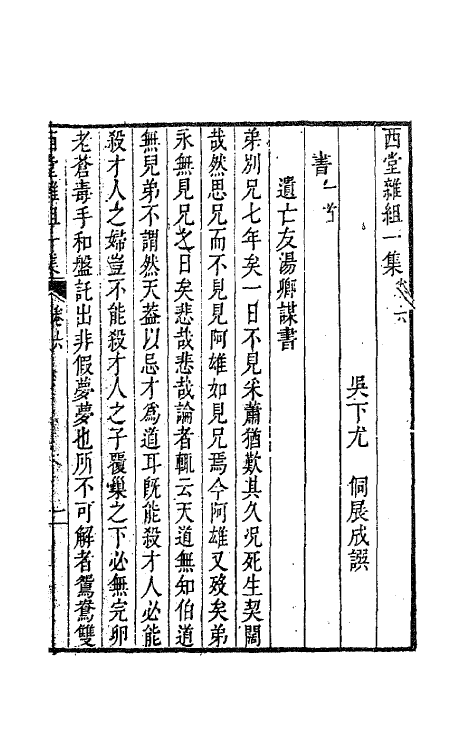 西堂雜組一集卷六
吳下尤　侗展成譔
書一首
遺亡友湯卿謀書
弟別兄七年矣一日不見采蕭猶歎其久況死生契闊
哉然思兄而不見見阿雄如見兄焉今阿雄又歿矣弟
永無見兄之日矣悲哉悲哉論者輒云天道無知伯道
無兒弟不謂然天葢以忌才爲道耳旣能殺才人必能
殺才人之婦豈不能殺才人之子覆巢之下必無完卵
老蒼毒手和盤託出非假夢夢也所不可解者鴛鴦雙
西堂雜組一集　卷六　一